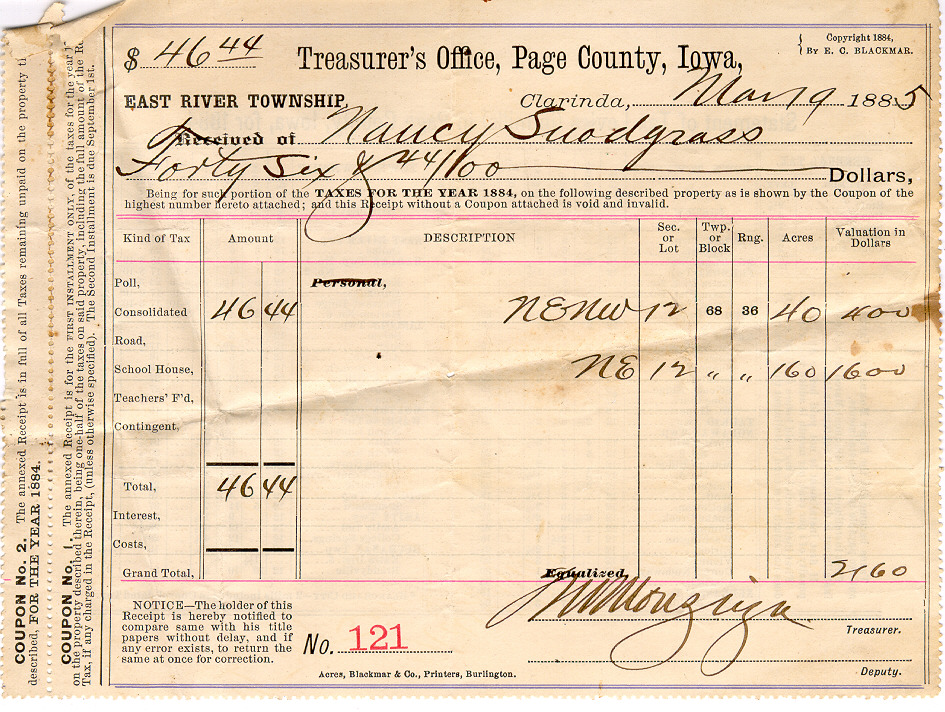 COUPON No. 2. The annexed Receipt is in full of all Taxes remaining unpaid on the property
described, FOR THE YEAR 1884.
COUPON No. 1. The annexed Receipt is for the FIRST INSTALLMENT ONLY, of the taxes for the year
on the property described therein, being one-half of the taxes on said property, including the full amount of the
Tax, if any charged in the Receipt, (unless otherwise specified). The Second Installment is due September 1st.
$ 46 44 Treasurer's Office, Page County, Iowa,
Copyright 1884,
By E. C. BLACKMAR.
EAST RIVER TOWNSHIP, Clarinda, Mar 9 1885
Received of Nancy Snodgrass
Forty Six & 44/100 Dollars,
Being for such portion of the TAXES FOR THE YEAR 1884, on the following described property as is shown by the Coupon of the
highest number hereto attached; and this Receipt without a Coupon attached is void and invalid.
Kind of Tax Amount DESCRIPTION Sec. or Lot Twp. or Block Rng. Acres Valuation in Dollars
Poll, Personal,
Consolidated 46 44 NE NW 12 68 36 40 400
Road,
School House, NE 12 " " 160 1600
Teachers' F'd,
Contingent,
Total, 46 44
Interest,
Costs,
Grand Total, Equalized, 2160
NOTICE—The holder of this
Receipt is hereby notified to
compare same with his title
papers without delay, and if
any error exists, to return the
same at once for correction.
No. 121
Treasurer.
Deputy.
Acres, Blackmar & Co., Printers, Burlington.